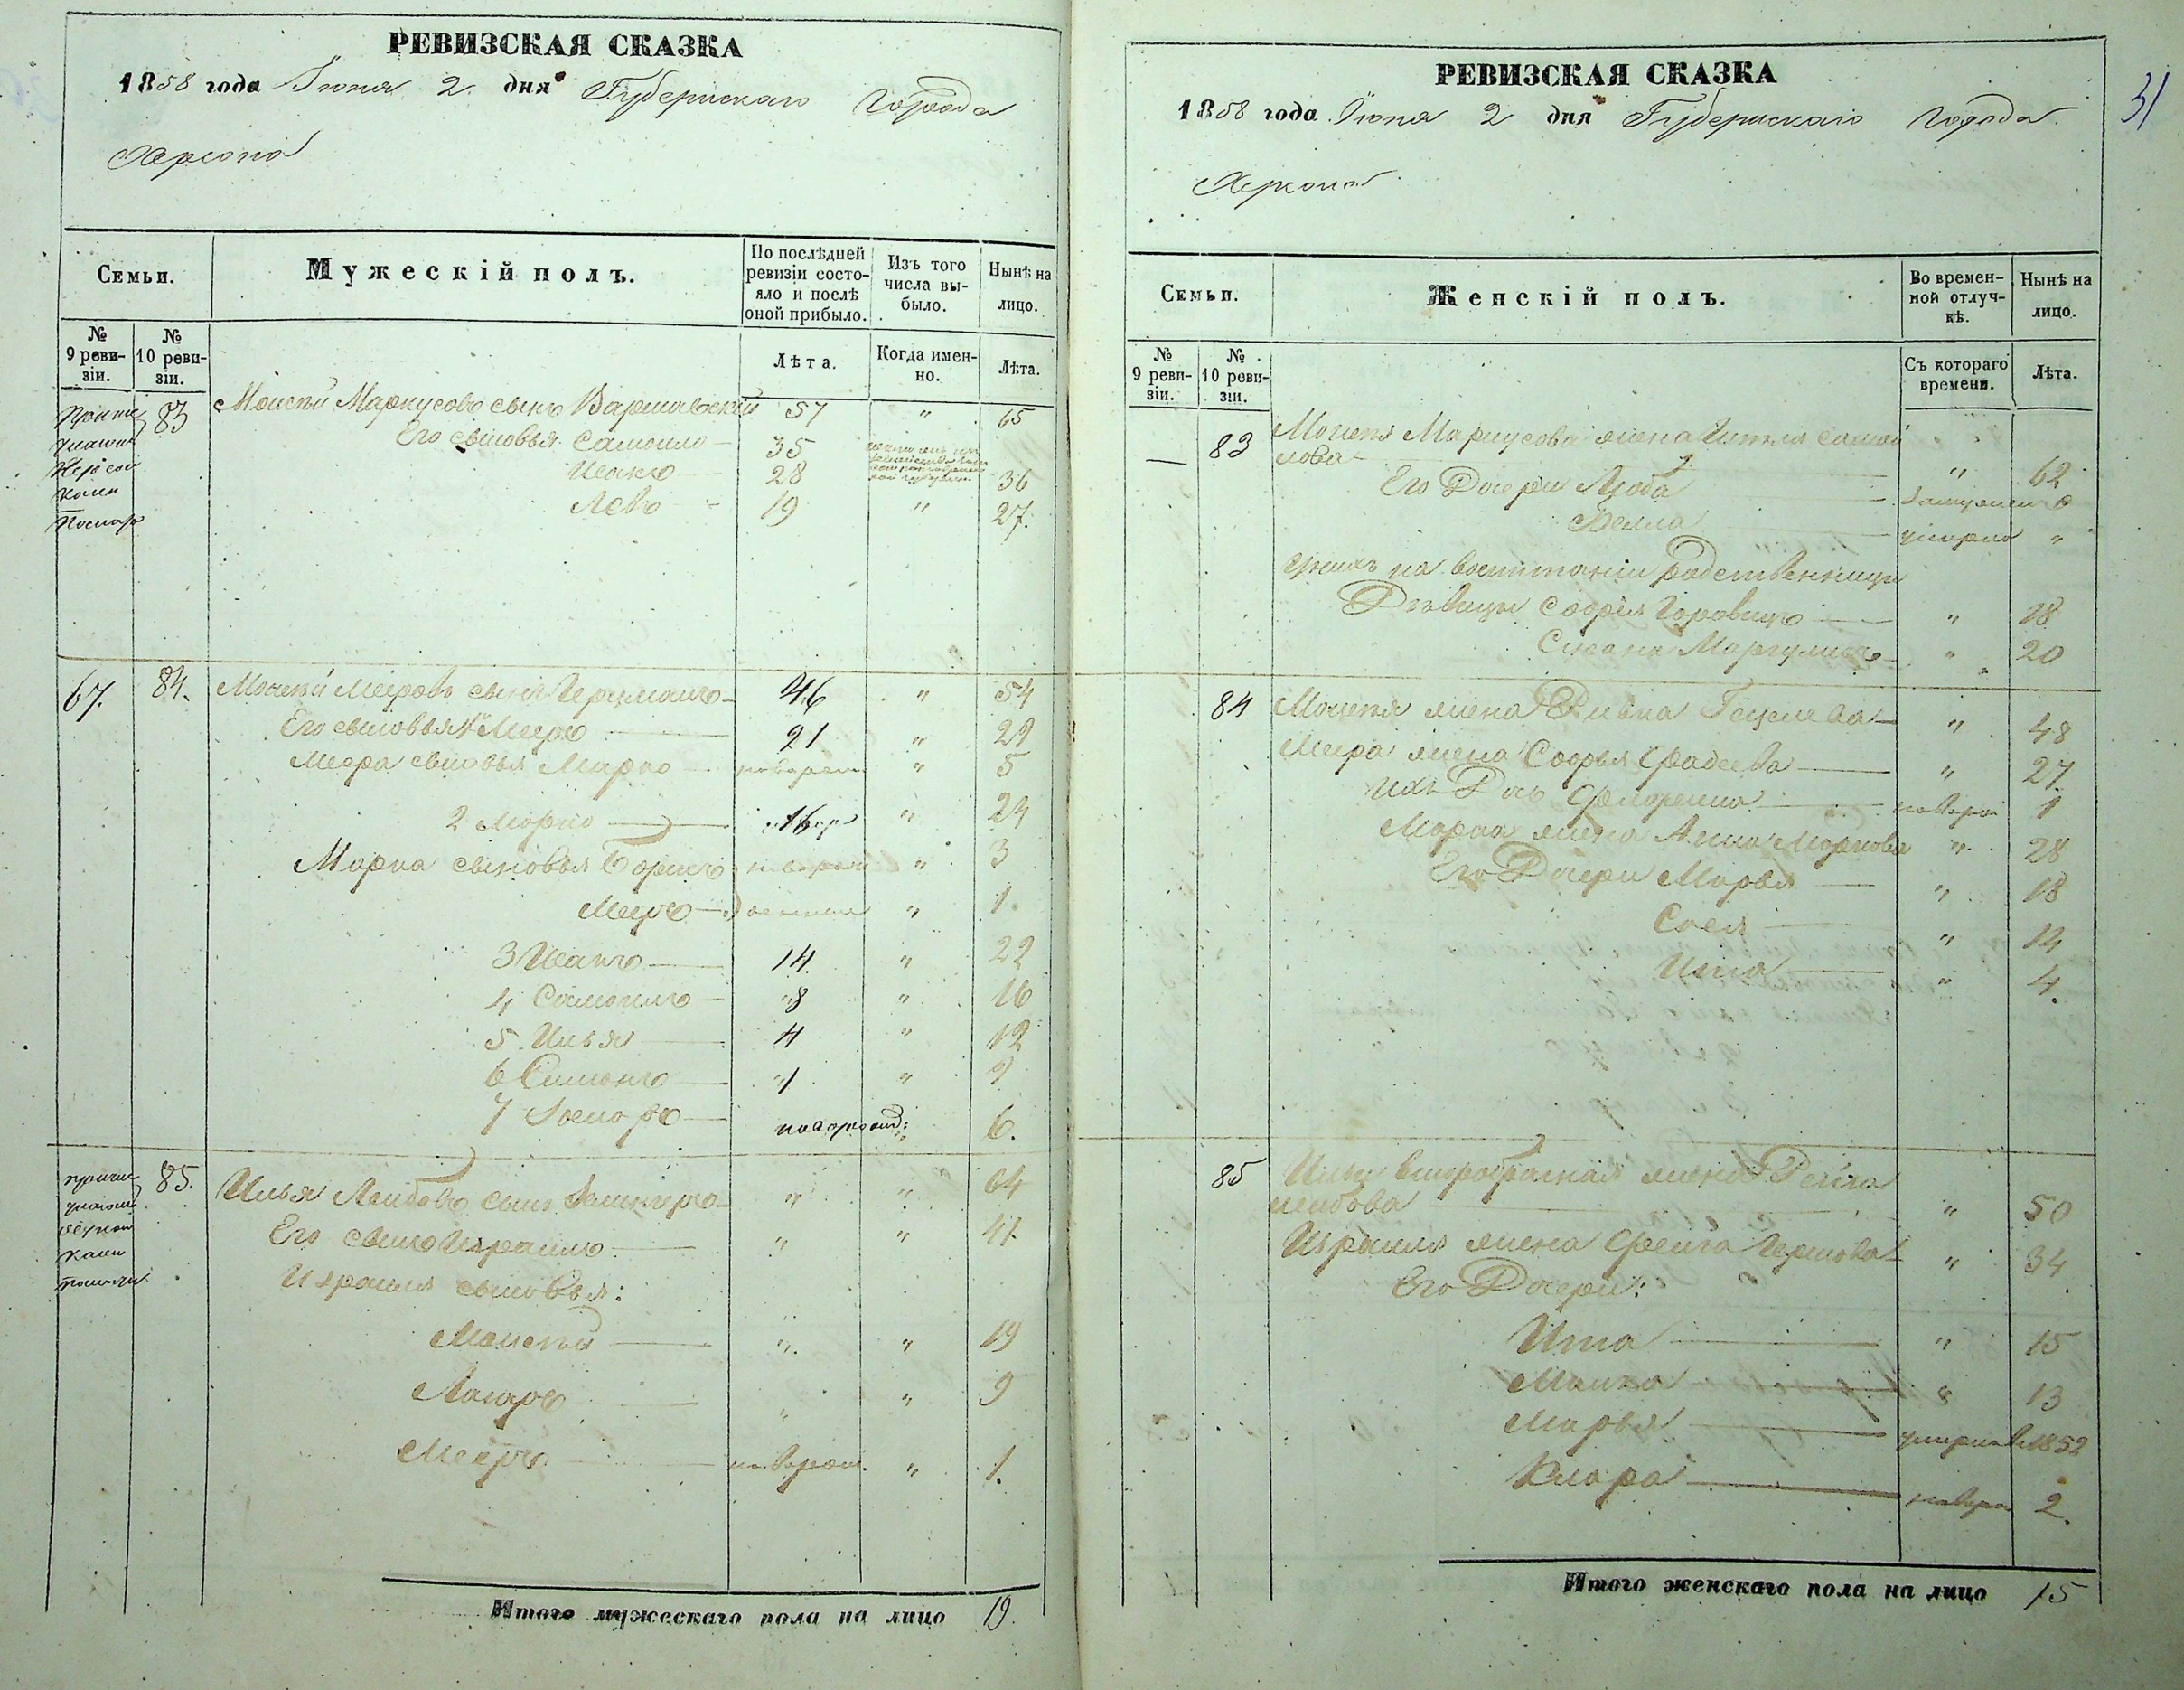 РЕВИЗСКАЯ СКАЗКА
1858 года Іюня 2 дня Губернскаго Города
Херсона
Семьи.
Мужескій полъ.
По послѣдней ревизіи состояло и послѣ оной прибыло.
Изъ того числа выбыло.
Нынѣ на лицо.
№ 9 ревизіи.
№ 10 ревизіи.
Лѣта.
Когда именно.
Лѣта.
83 Моисей Маркусовъ сынъ Варшавскій 57 " 65
Его сыновья Самоилъ 35
Исакъ 28 36
Левъ 19 " 27.
67. 84. Моисей Мееровъ сынъ 46 " 54
Его сыновья 1й Мееръ 21 " 29
Меера сыновья Марко новорож " 5
2 Марко 16 " 24
Марка сыновья Борисъ новорож " 3
Мееръ " 1.
3 Исакъ 14. " 22
4 Самоилъ 8 " 16
5 Илья 4 " 12
6 Симонъ 1 " 9
7 новорожд: 6.
85. Илья Лейбовъ сынъ " " 64
Его сынъ Израиль " " 41.
Израиля сыновья:
Моисей " " 19
Лазарь " " 9
Мееръ новорож. " 1.
Итого мужескаго пола на лицо 19.
31
РЕВИЗСКАЯ СКАЗКА
1858 года Іюня 2 дня Губернскаго Города
Херсона
Семьи.
Женскій полъ.
Во временной отлучкѣ.
Нынѣ на лицо.
№ 9 ревизіи.
№ 10 ревизіи.
Съ котораго времени.
Лѣта.
83 Моисея Маркусова жена Самой
лова " 62
Его Дочери Люба замужемъ
Белла умерла "
у нихъ на воспитаніи родственницы
Дѣвицы Софія Горовицъ " 18
Сюзана Маргулисъ " 20
84 Моисея жена Ривка Гецелева " 48
Меера жена Софья Фадеева " 27.
Ихъ Дочь новорож 1
Марка жена Анна Маркова " 28
Его Дочери Марья " 18
" 14
Ита " 4.
85 Ильи второбрачная жена Рейза
Лейбова " 50
Израиля жена Фейга Гершова " 34
Его Дочери:
Ита " 15
" 13
Марья умерла въ 1852
Клара новорож 2.
Итого женскаго пола на лицо 15